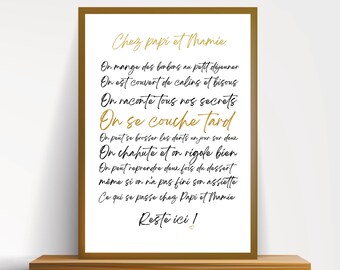 Chez papi et Mamie
On mange des bonbons au petit déjeuner
On est couvert de calins et bisous
On raconte tous nos secrets
On se couche tard
On peut se brosser les dents un jour sur deux
On chahute et on rigole bien
On peut reprendre deux fois du dessert
même si on n'a pas fini son assiette
Ce qui se passe chez Papi et Mamie
Reste ici !